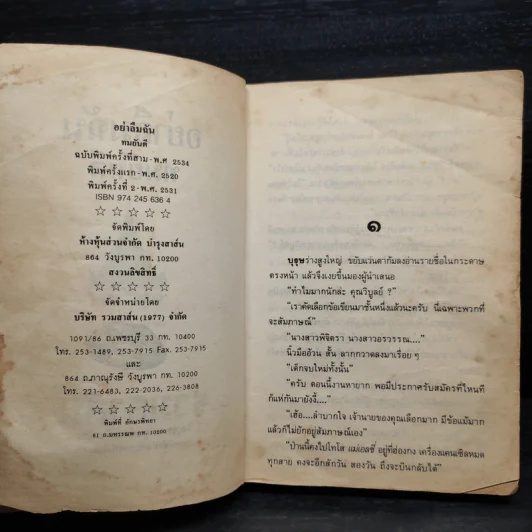 อย่าลืมฉัน
ทมยันตี
ฉบับพิมพ์ครั้งที่สาม-พ.ศ 2534
พิมพ์ครั้งแรก-พ.ศ. 2520
พิมพ์ครั้งที่ 2-พ.ศ. 2531
ISBN 974 245 636 4
☆ ☆ ☆ ☆ ☆
จัดพิมพ์โดย
ห้างหุ้นส่วนจำกัด บำรุงสาส์น
864 วังบูรพา กท. 10200
สงวนลิขสิทธิ์
☆ ☆ ☆ ☆ ☆
จัดจำหน่ายโดย
บริษัท รวมสาส์น (1977) จำกัด
1091/86 ถ.เพชรบุรี 33 กท. 10400
โทร. 253-1489, 253-7915 Fax. 253-7915
และ
864 ถ.ภาณุรังษี วังบูรพา กท. 10200
โทร. 221-6483, 222-2036, 226-3808
☆ ☆ ☆ ☆ ☆
พิมพ์ที่ อักษรพิทยา
81 ถ.มหรรณพ กท. 10200
๑
บุรุษร่างสูงใหญ่ ขยับแว่นตาก้มลงอ่านรายชื่อในกระดาษ
ตรงหน้า แล้วจึงเงยขึ้นมองผู้นำเสนอ
“ทำไมมากนักล่ะ คุณวิบูลย์ ?”
“เราคัดเลือกข้อเขียนมาชั้นหนึ่งแล้วนะครับ นี่เฉพาะพวกที่
จะสัมภาษณ์”
“นางสาวพิจิตรา นางสาวอรวรรณ....”
นิ้วมืออ้วน สั้น ลากกวาดลงมาเรื่อย ๆ
“เด็กจบใหม่ทั้งนั้น”
“ครับ ตอนนี้งานหายาก พอมีประกาศรับสมัครที่ไหนที
ก็แห่กันมายังงี้....”
“เฮ้อ....ลำบากใจ เจ้านายของคุณเลือกมาก มีข้อแม้มาก
แล้วก็ไม่ยักอยู่สัมภาษณ์เอง”
“ป่านนี้คงไปโทโส แม่เอลซี่ อยู่ที่ฮ่องกง เครื่องแคนเซิลหมด
ทุกสาย คงจะอีกสักวัน สองวัน ถึงจะบินกลับได้”